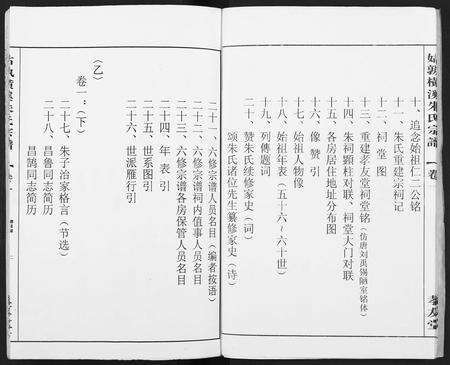 姑孰橫溪朱氏宗譜
卷一
孝友堂
十、追念始祖仁二公銘
十一、朱氏重建宗祠记
十二、祠堂图
十三、重建孝友堂祠堂铭（仿唐刘禹锡陋室铭体）
十四、朱祠顕柱对联、祠堂大门对联
十五、各房居住地址分布图
十六、像赞引
十七、始祖人物像
十八、始祖年表（五十六～六十世）
十九、列傳題词
二十、赞朱氏续修家史（词）
颂朱氏诸位先生纂修家史（诗）
二十一、六修宗谱人员名目（编者按语）
二十二、六修宗谱祠内值事人员名目
二十三、六修宗谱各房保管人员名目
二十四、年表引
二十五、世系图引
二十六、世派雁行引
（乙）
卷一：（下）
二十七、朱子治家格言（节选）
二十八、昌鲁同志简历
昌鹄同志简历